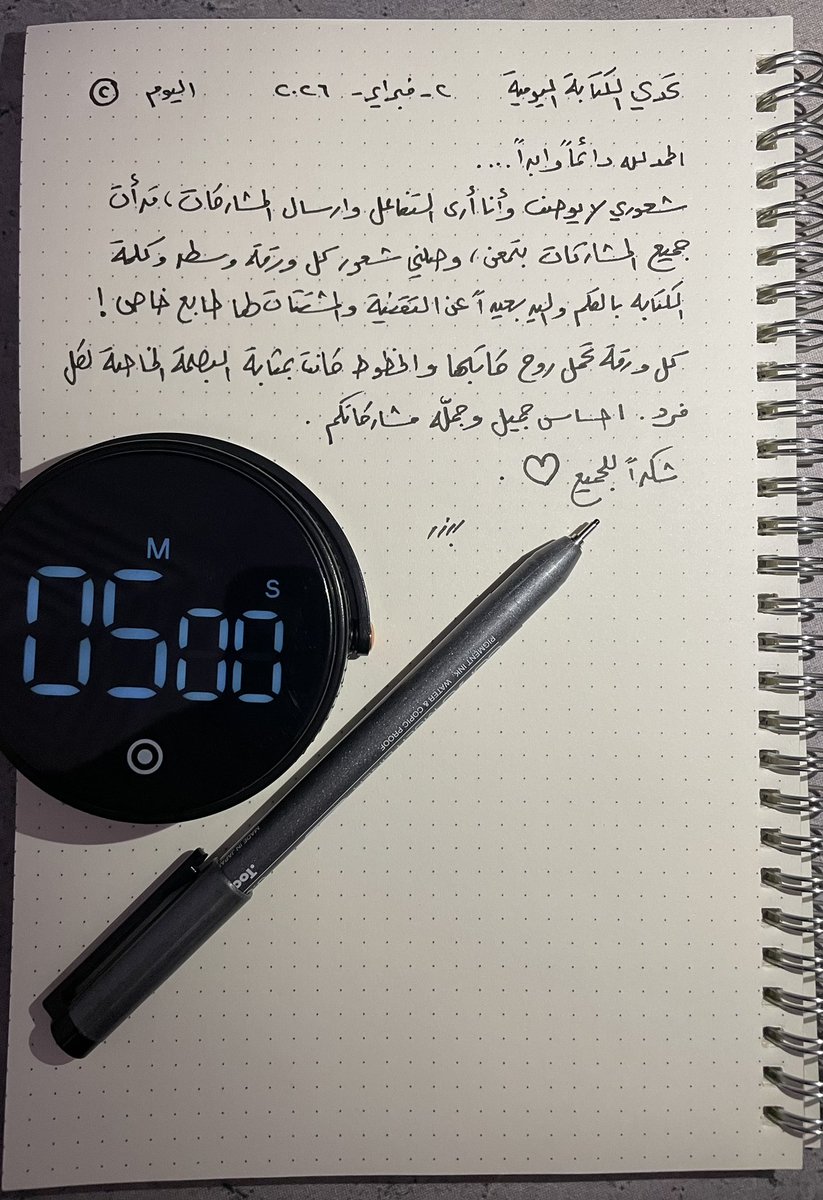 تحدي الكتابة اليومية ٢-فبراير-٢٠٢٦ اليوم ٢
الحمدلله دائماً وابداً....
شعوري لا يوصف وأنا أرى التفاعل وارسال المشاركات، قرأت
جميع المشاركات بتمعن، وصلني شعور كل ورقة وسطر وكلمة
الكتابه بالقلم واليد بعيداً عن التقنية والمشتتات لها طابع خاص!
كل ورقة تحمل روح كاتبها والخطوط كانت بمثابة البصمة الخاصة لكل
فرد. احساس جميل وجملّه مشاركاتكم.
شكراً للجميع ♡.
M
S
05 00
PIGMENT INK. WATER & COPIC PROOF
MADE IN JAPAN